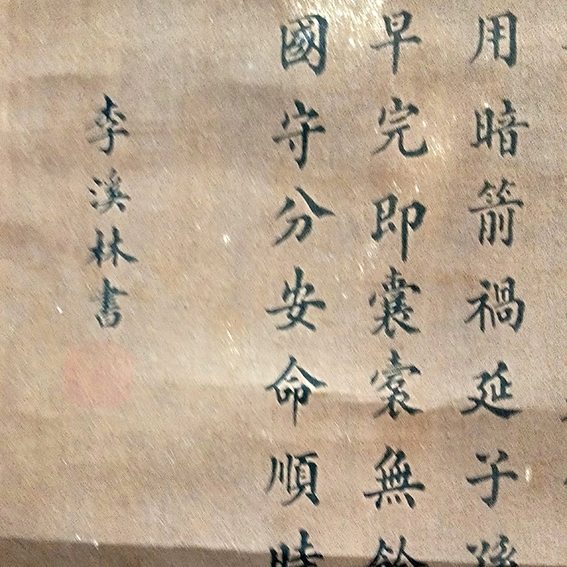 用暗箭禍延子孫
早完即囊橐無餘
國守分安命順時
李溪林書